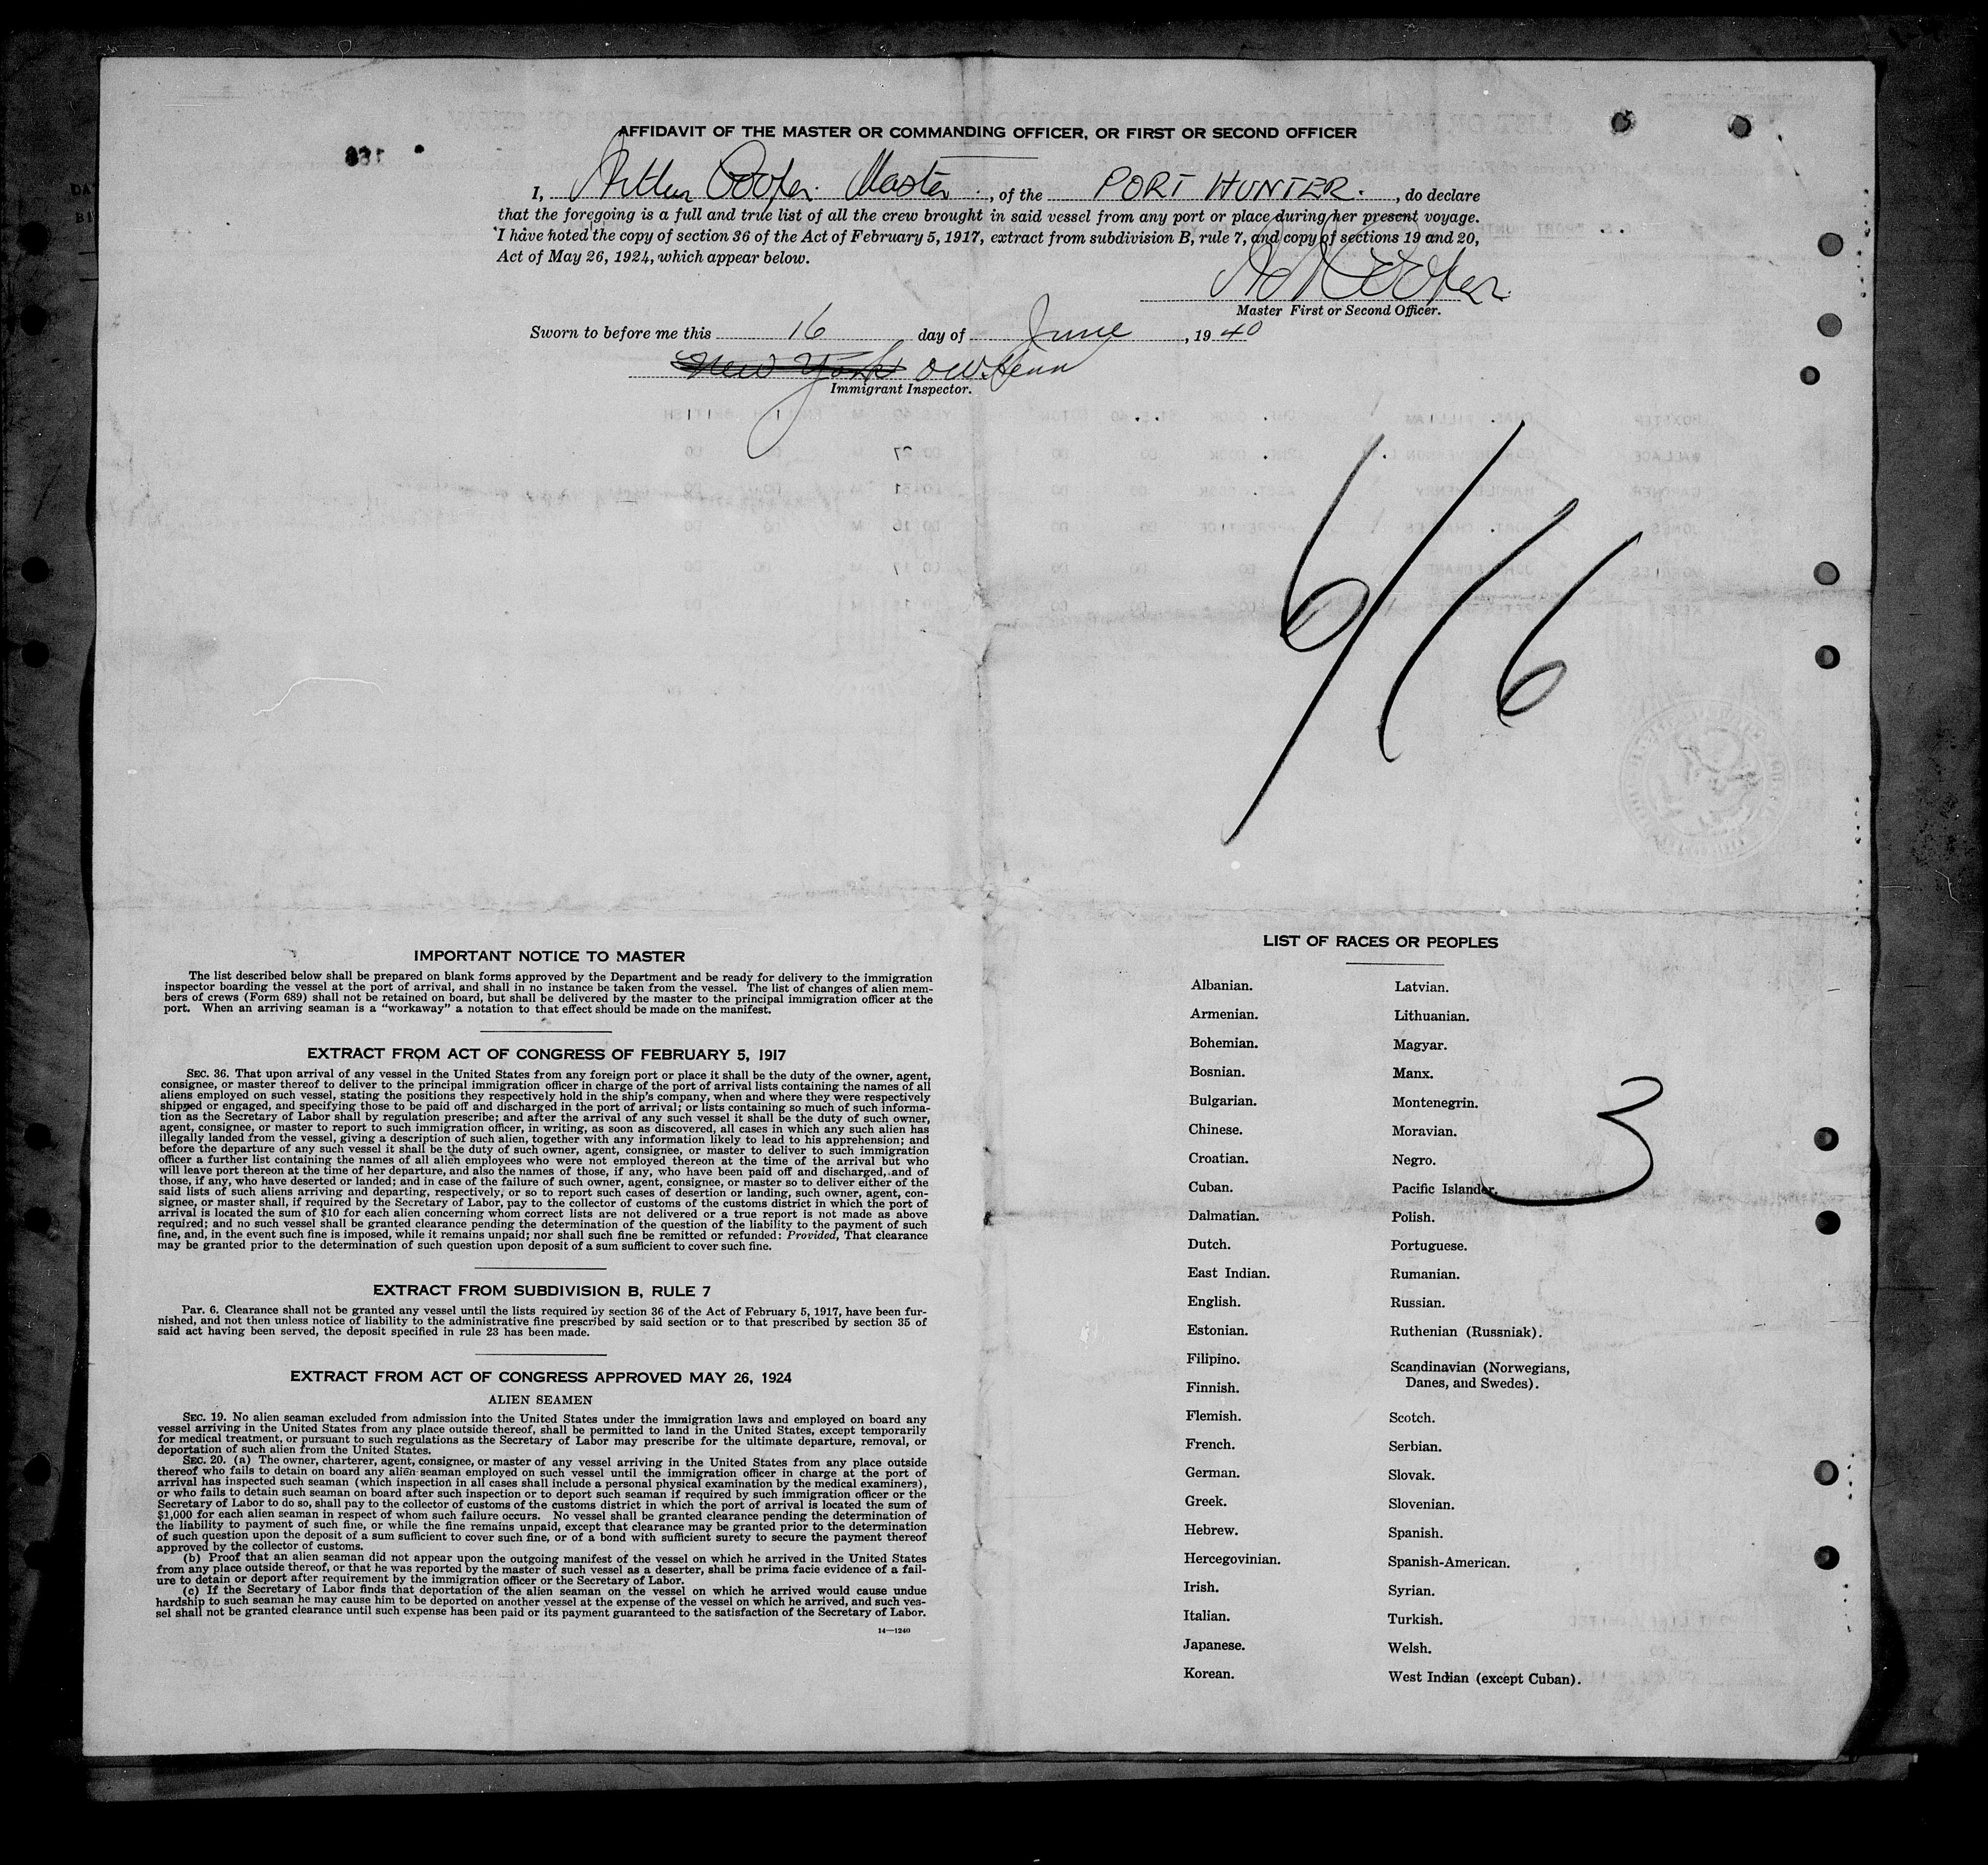 AFFIDAVIT OF THE MASTER OR COMMANDING OFFICER, OR FIRST OR SECOND OFFICER
I, Arthur Cooper. Master, of the PORT HUNTER., do declare
that the foregoing is a full and true list of all the crew brought in said vessel from any port or place during her present voyage.
I have noted the copy of section 36 of the Act of February 5, 1917, extract from subdivision B, rule 7, and copy of sections 19 and 20,
Act of May 26, 1924, which appear below.
Cooper
Master First or Second Officer.
Sworn to before me this 16 day of June, 1940
New York
Immigrant Inspector.
6/16
IMPORTANT NOTICE TO MASTER
The list described below shall be prepared on blank forms approved by the Department and be ready for delivery to the immigration
inspector boarding the vessel at the port of arrival, and shall in no instance be taken from the vessel. The list of changes of alien mem-
bers of crews (Form 689) shall not be retained on board, but shall be delivered by the master to the principal immigration officer at the
port. When an arriving seaman is a "workaway" a notation to that effect should be made on the manifest.
EXTRACT FROM ACT OF CONGRESS OF FEBRUARY 5, 1917
SEC. 36. That upon arrival of any vessel in the United States from any foreign port or place it shall be the duty of the owner, agent,
consignee, or master thereof to deliver to the principal immigration officer in charge of the port of arrival lists containing the names of all
aliens employed on such vessel, stating the positions they respectively hold in the ship's company, when and where they were respectively
shipped or engaged, and specifying those to be paid off and discharged in the port of arrival; or lists containing so much of such informa-
tion as the Secretary of Labor shall by regulation prescribe; and after the arrival of any such vessel it shall be the duty of such owner,
agent, consignee, or master to report to such immigration officer, in writing, as soon as discovered, all cases in which any such alien has
illegally landed from the vessel, giving a description of such alien, together with any information likely to lead to his apprehension; and
before the departure of any such vessel it shall be the duty of such owner, agent, consignee, or master to deliver to such immigration
officer a further list containing the names of all alien employees who were not employed thereon at the time of the arrival but who
will leave port thereon at the time of her departure, and also the names of those, if any, who have been paid off and discharged, and of
those, if any, who have deserted or landed; and in case of the failure of such owner, agent, consignee, or master so to deliver either of the
said lists of such aliens arriving and departing, respectively, or so to report such cases of desertion or landing, such owner, agent, con-
signee, or master shall, if required by the Secretary of Labor, pay to the collector of customs of the customs district in which the port of
arrival is located the sum of $10 for each alien concerning whom correct lists are not delivered or a true report is not made as above
required; and no such vessel shall be granted clearance pending the determination of the question of the liability to the payment of such
fine, and, in the event such fine is imposed, while it remains unpaid; nor shall such fine be remitted or refunded: Provided, That clearance
may be granted prior to the determination of such question upon deposit of a sum sufficient to cover such fine.
EXTRACT FROM SUBDIVISION B, RULE 7
Par. 6. Clearance shall not be granted any vessel until the lists required by section 36 of the Act of February 5, 1917, have been fur-
nished, and not then unless notice of liability to the administrative fine prescribed by said section or to that prescribed by section 35 of
said act having been served, the deposit specified in rule 23 has been made.
EXTRACT FROM ACT OF CONGRESS APPROVED MAY 26, 1924
ALIEN SEAMEN
SEC. 19. No alien seaman excluded from admission into the United States under the immigration laws and employed on board any
vessel arriving in the United States from any place outside thereof, shall be permitted to land in the United States, except temporarily
for medical treatment, or pursuant to such regulations as the Secretary of Labor may prescribe for the ultimate departure, removal, or
deportation of such alien from the United States.
SEC. 20. (a) The owner, charterer, agent, consignee, or master of any vessel arriving in the United States from any place outside
thereof who fails to detain on board any alien seaman employed on such vessel until the immigration officer in charge at the port of
arrival has inspected such seaman (which inspection in all cases shall include a personal physical examination by the medical examiners),
or who fails to detain such seaman on board after such inspection or to deport such seaman if required by such immigration officer or the
Secretary of Labor to do so, shall pay to the collector of customs of the customs district in which the port of arrival is located the sum of
$1,000 for each alien seaman in respect of whom such failure occurs. No vessel shall be granted clearance pending the determination of
the liability to payment of such fine, or while the fine remains unpaid, except that clearance may be granted prior to the determination
of such question upon the deposit of a sum sufficient to cover such fine, or of a bond with sufficient surety to secure the payment thereof
approved by the collector of customs.
(b) Proof that an alien seaman did not appear upon the outgoing manifest of the vessel on which he arrived in the United States
from any place outside thereof, or that he was reported by the master of such vessel as a deserter, shall be prima facie evidence of a fail-
ure to detain or deport after requirement by the immigration officer or the Secretary of Labor.
(c) If the Secretary of Labor finds that deportation of the alien seaman on the vessel on which he arrived would cause undue
hardship to such seaman he may cause him to be deported on another vessel at the expense of the vessel on which he arrived, and such ves-
sel shall not be granted clearance until such expense has been paid or its payment guaranteed to the satisfaction of the Secretary of Labor.
14—1240
LIST OF RACES OR PEOPLES
Albanian.
Armenian.
Bohemian.
Bosnian.
Bulgarian.
Chinese.
Croatian.
Cuban.
Dalmatian.
Dutch.
East Indian.
English.
Estonian.
Filipino.
Finnish.
Flemish.
French.
German.
Greek.
Hebrew.
Hercegovinian.
Irish.
Italian.
Japanese.
Korean.
Latvian.
Lithuanian.
Magyar.
Manx.
Montenegrin.
Moravian.
Negro.
Pacific Islander.
Polish.
Portuguese.
Rumanian.
Russian.
Ruthenian (Russniak).
Scandinavian (Norwegians,
Danes, and Swedes).
Scotch.
Serbian.
Slovak.
Slovenian.
Spanish.
Spanish-American.
Syrian.
Turkish.
Welsh.
West Indian (except Cuban).
3